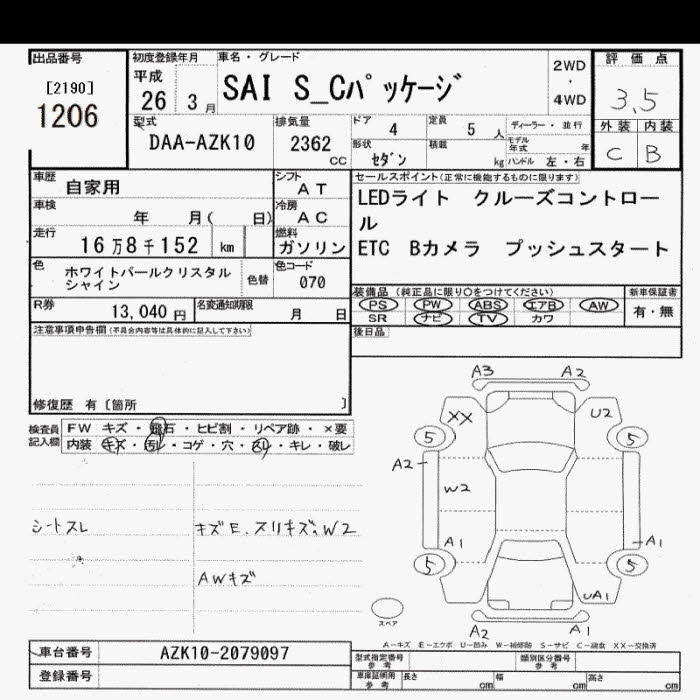 出品番号
[2190]
1206
初度登録年月
平成
26 3月
車名・グレード
SAI S_Cパッケージ
2WD
・
4WD
評価点
3.5
外装 内装
C B
型式
DAA-AZK10
排気量
2362
CC
ドア 4
定員 5 人
ディーラー・並行
形状 セダン
積載 kg
モデル年式 年
ハンドル 左・右
車歴 自家用
シフト AT
車検 年 月( 日)
冷房 AC
走行 16万8千152 km
燃料 ガソリン
色 ホワイトパールクリスタル
シャイン
色替
色コード 070
R券 13,040 円
名変通知期限 月 日
セールスポイント(正常に機能するものに限ります)
LEDライト クルーズコントロー
ル
ETC Bカメラ プッシュスタート
装備品 (純正品に限り〇をつけてください)
PS PW ABS エアB AW
SR ナビ TV カワ
新車保証書
有・無
後日品
注意事項申告欄(不具合内容等は具体的に記入して下さい)
修復歴 有〔箇所 〕
検査員記入欄
FW キズ・飛石・ヒビ割・リペア跡・×要
内装 キズ・汚レ・コゲ・穴・スレ・キレ・破レ
シートスレ
キズE、スリキズ、W2
AWキズ
A3 A2
XX U2
5 5
A2
W2
A1 A1
5 5
UA1
A2 A1
スペア
A-キズ E-エクボ U-凹み W-補修跡 S-サビ C-腐食 XX-交換済
車台番号 AZK10-2079097
登録番号
型式指定番号
参考
類別区分番号
参考
車庫証明用
参考
長さ cm 幅 cm 高さ cm